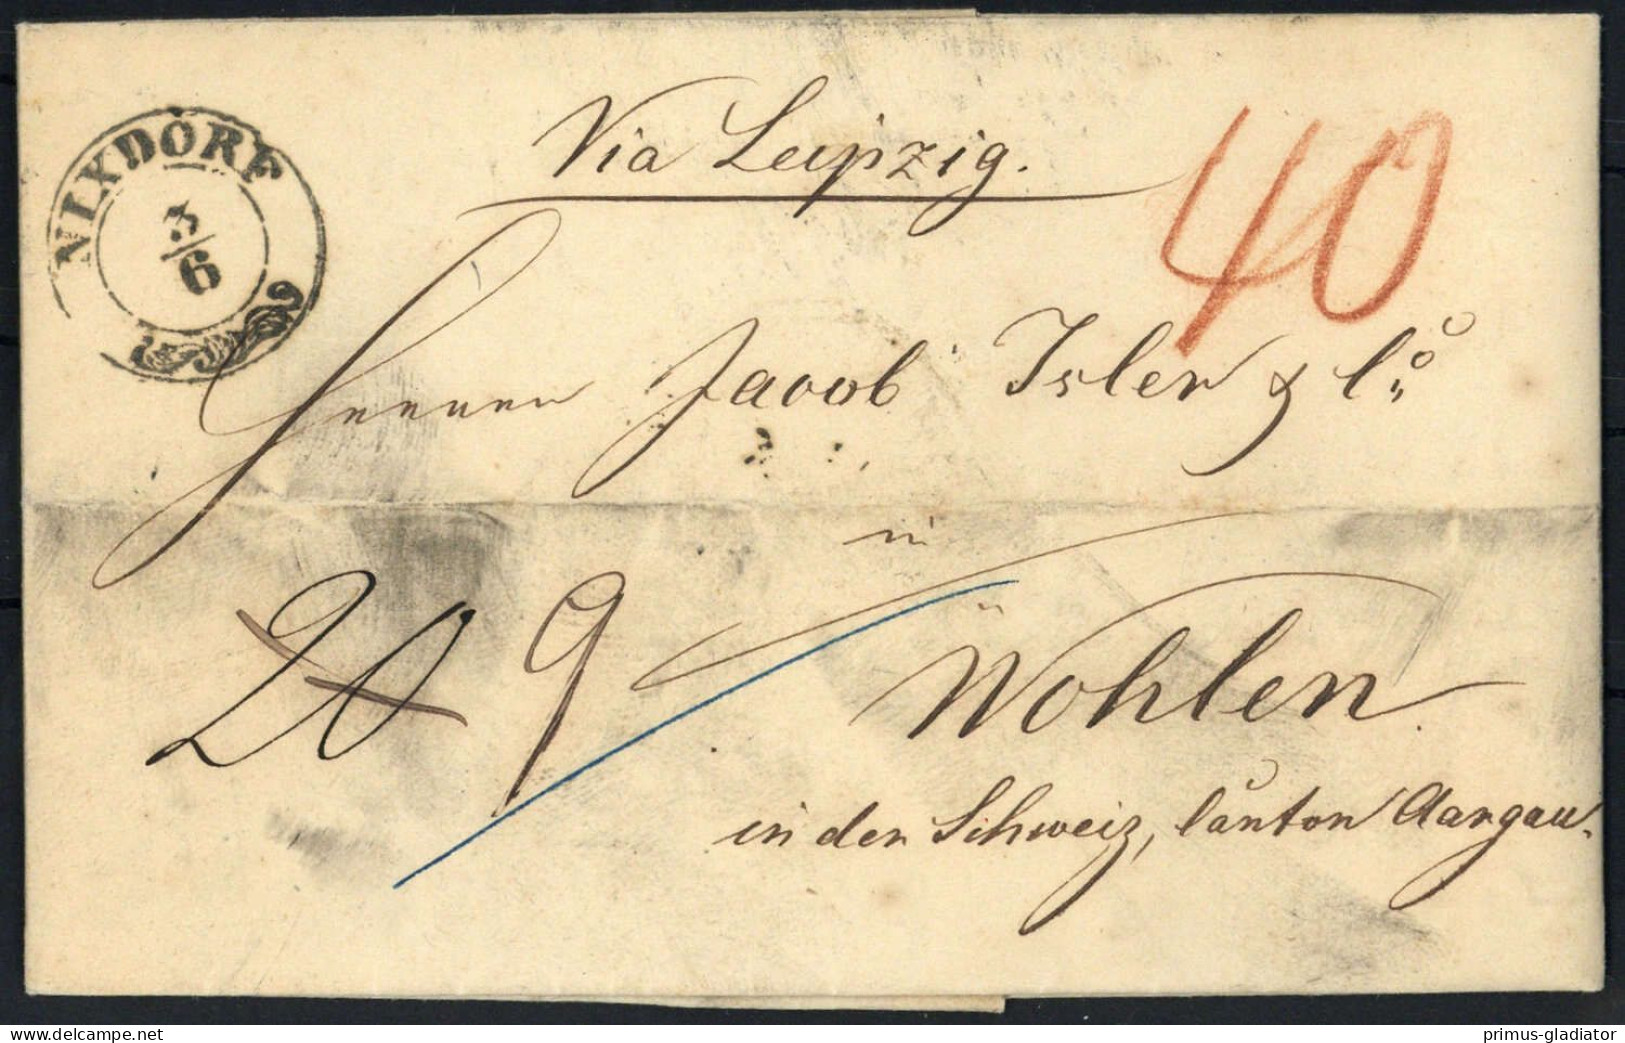 NIXDORF
3/6
Via Leipzig.
40
Herren Jacob Isler & Co
in
20 9
Wohlen
in der Schweiz, Canton Aargau.
www.delcampe.net
primus-gladiator